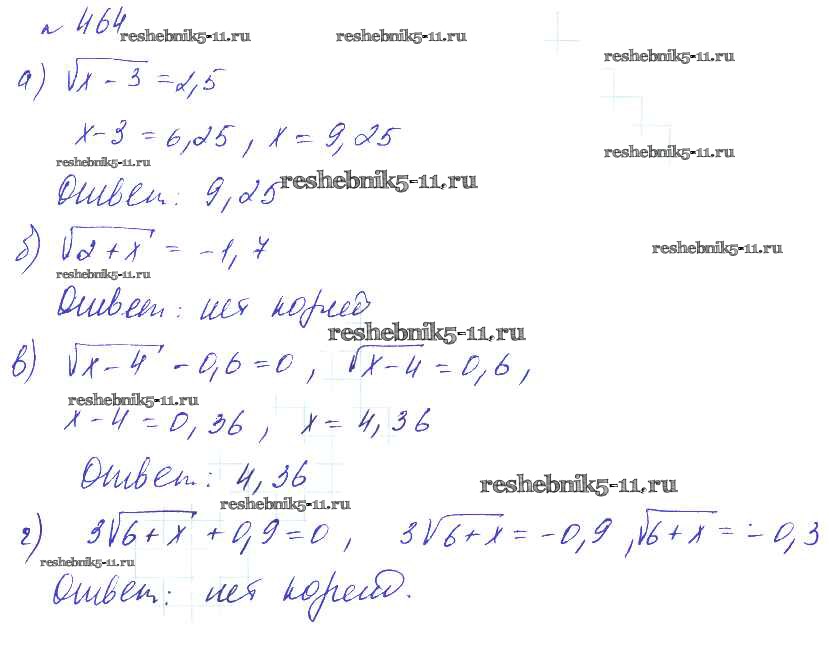 № 464 reshebnik5-11.ru reshebnik5-11.ru
reshebnik5-11.ru
а) √x - 3 = 2,5
x - 3 = 6,25 , x = 9,25
reshebnik5-11.ru reshebnik5-11.ru
Ответ: 9,25 reshebnik5-11.ru
б) √2 + x = -1,7 reshebnik5-11.ru
reshebnik5-11.ru
Ответ: нет корней
reshebnik5-11.ru
в) √x - 4 - 0,6 = 0 , √x - 4 = 0,6 ,
reshebnik5-11.ru
x - 4 = 0,36 , x = 4,36
Ответ: 4,36 reshebnik5-11.ru
reshebnik5-11.ru
г) 3√6 + x + 0,9 = 0 , 3√6 + x = -0,9 , √6 + x = -0,3
reshebnik5-11.ru
Ответ: нет корней.